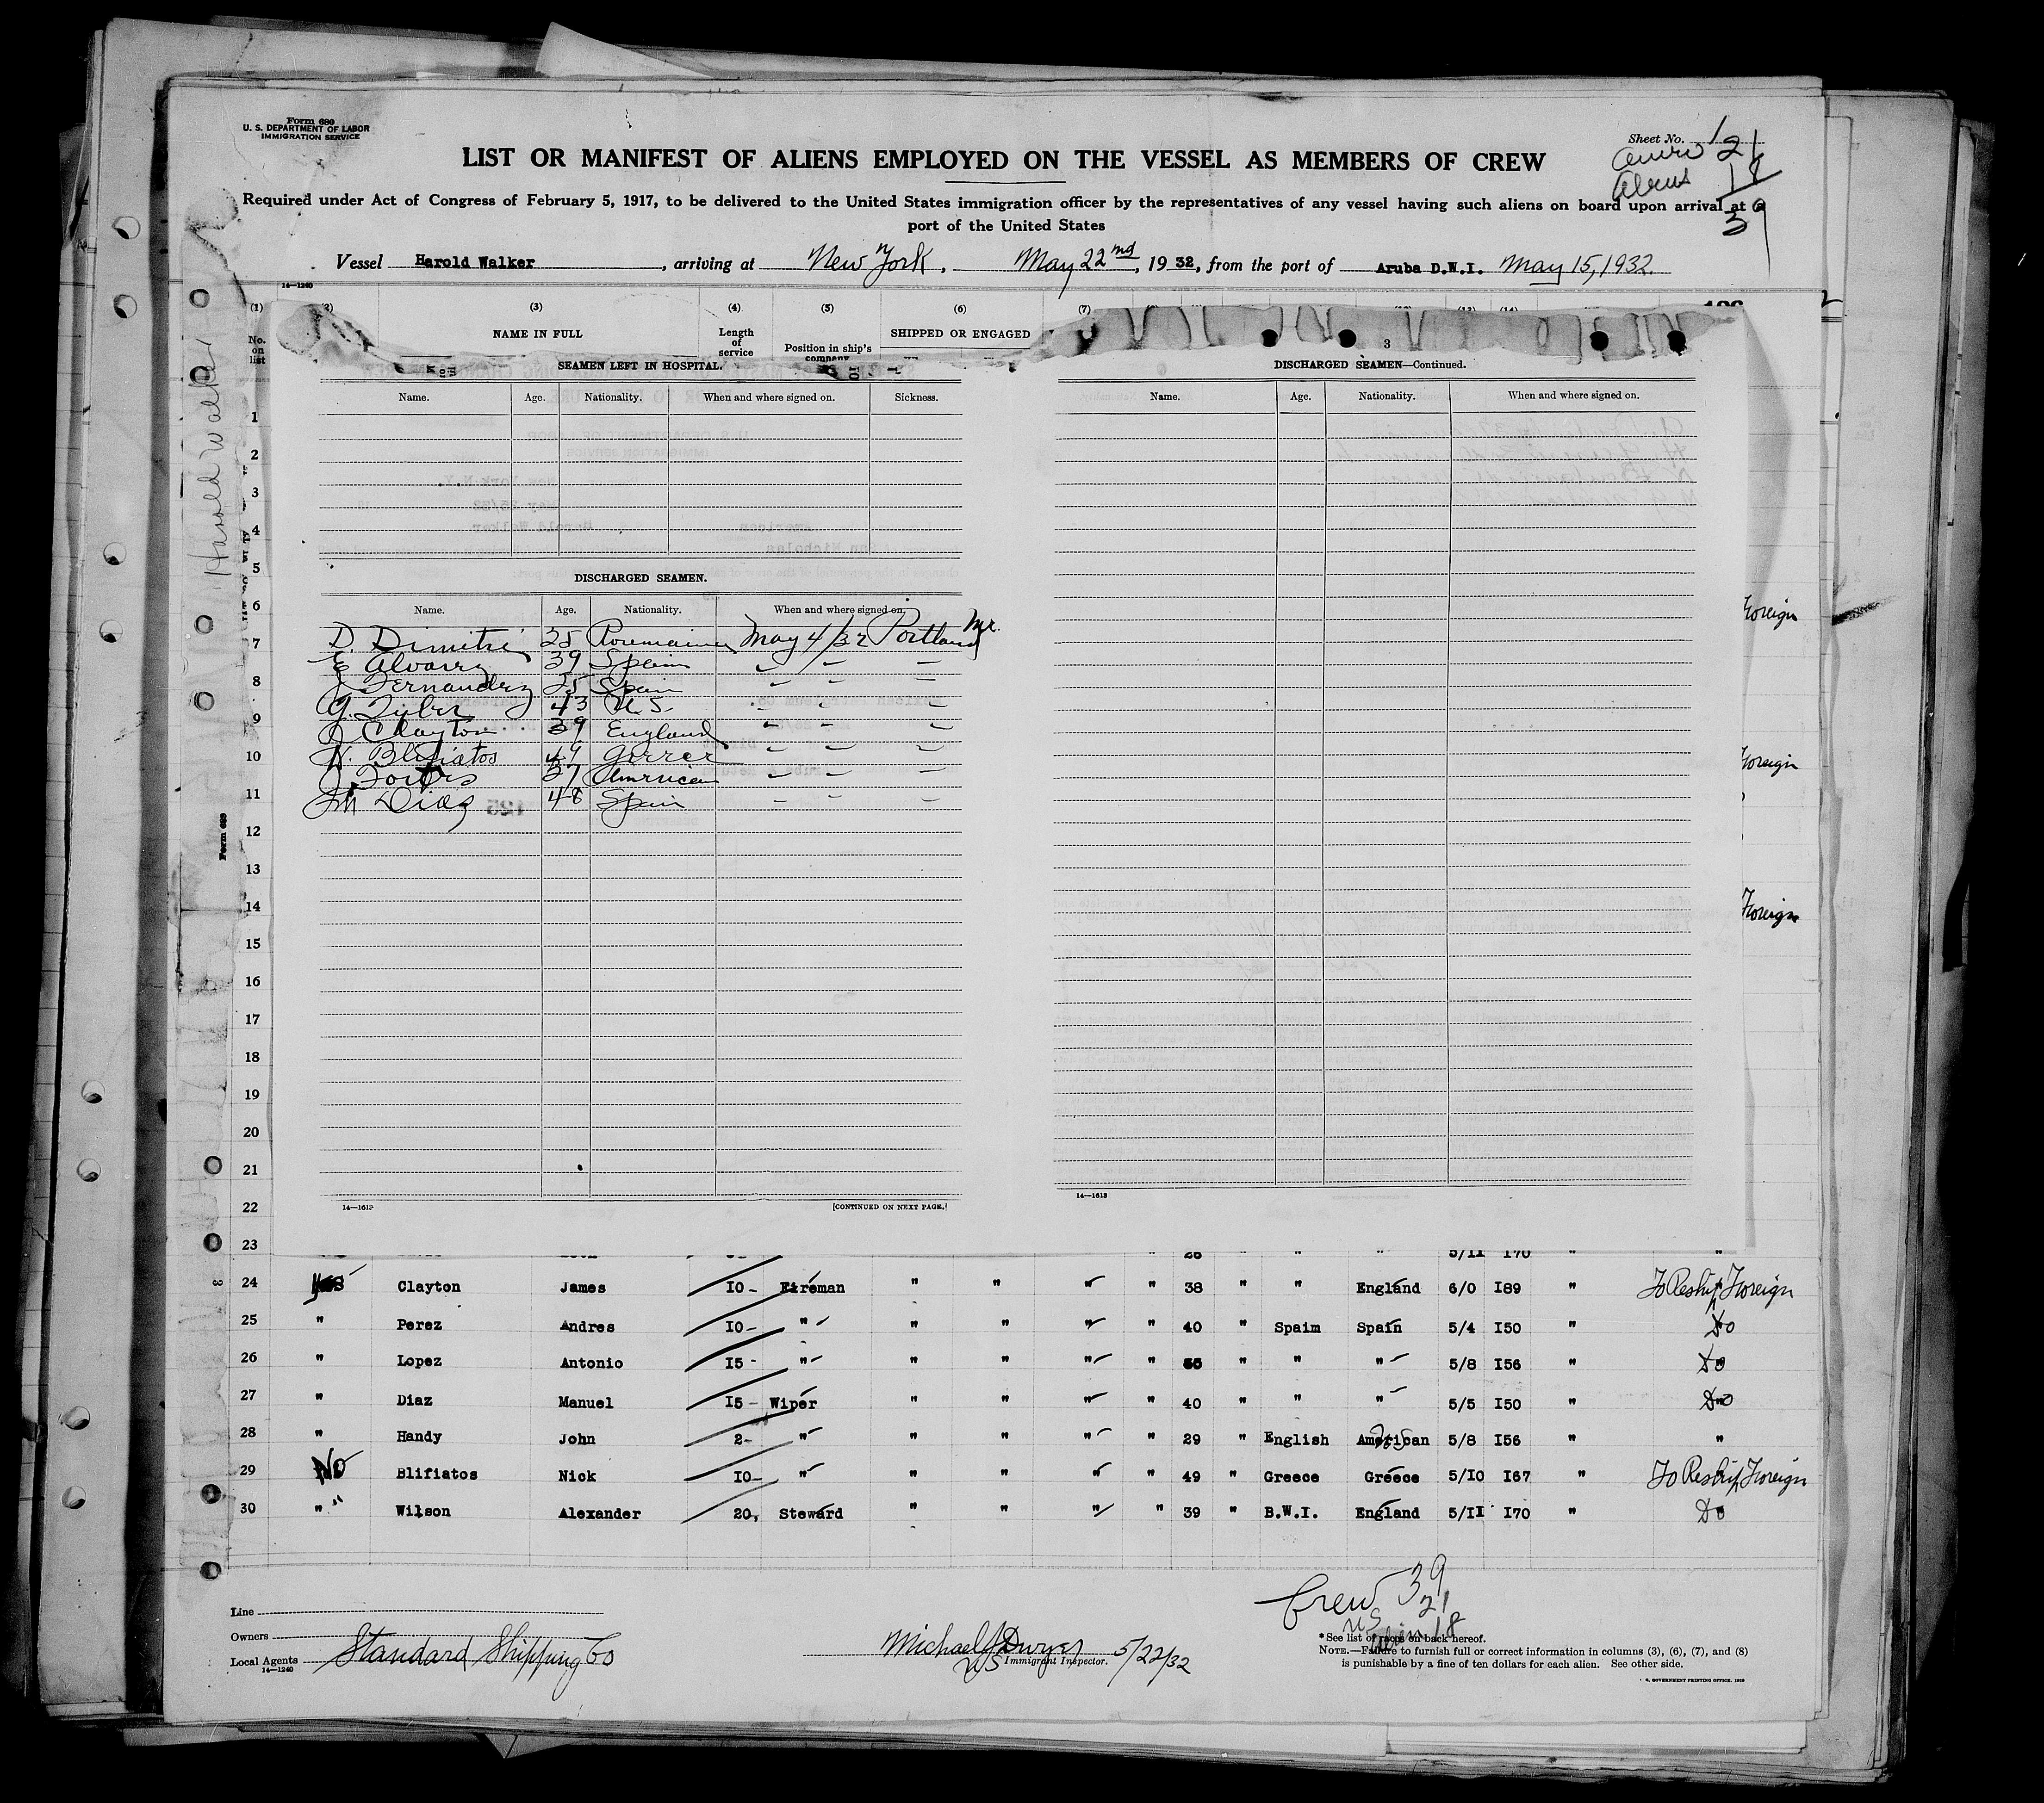 Form 680
U. S. DEPARTMENT OF LABOR
IMMIGRATION SERVICE
Sheet No. 1
LIST OR MANIFEST OF ALIENS EMPLOYED ON THE VESSEL AS MEMBERS OF CREW
21
Aliens 18
39
Required under Act of Congress of February 5, 1917, to be delivered to the United States immigration officer by the representatives of any vessel having such aliens on board upon arrival at a
port of the United States
Vessel Harold Walker, arriving at New York, May 22nd, 1932, from the port of Aruba D.W.I. May 15, 1932.
14-1240
(1) (2) (3) (4) (5) (6) (7)
No. on list NAME IN FULL Length of service Position in ship's company SHIPPED OR ENGAGED
Harold Walker
3
SEAMEN LEFT IN HOSPITAL.
Name. Age. Nationality. When and where signed on. Sickness.
DISCHARGED SEAMEN.
Name. Age. Nationality. When and where signed on.
D. Dimitri 25 Roumainia May 4/32 Portland Me.
E Alvarez 39 Spain " " "
J Fernandez 25 Spain " " "
G. Tyler 43 U.S. " " "
J Clayton 39 England " " "
N. Blifiatos 49 Greece " " "
J 37 American " " "
M Diaz 48 Spain " " "
14—1613
[CONTINUED ON NEXT PAGE.]
DISCHARGED SEAMEN—Continued.
Name. Age. Nationality. When and where signed on.
14—1613
Foreign
Foreign
Foreign
1
2
3
4
5
6
7
8
9
10
11
12
13
14
15
16
17
18
19
20
21
22
23 " 26 " " " 5/II I70 " "
24 Clayton James 10 Fireman " " " " 38 " " England 6/0 I89 " To Reship Foreign
25 " Perez Andres 10 " " " " " 40 " Spaim Spain 5/4 I50 " Do
26 " Lopez Antonio I5 " " " " " " " " 5/8 I56 " Do
27 " Diaz Manuel I5 Wiper " " " " 40 " " " 5/5 I50 " Do
28 " Handy John 2 " " " " " 29 " English American US 5/8 I56 " "
29 No Blifiatos Nick IO " " " " " 49 " Greece Greece 5/IO I67 " To Reship Foreign
30 " Wilson Alexander 20 Steward " " " " 39 " B.W.I. England 5/II I70 " Do
Form 689
Crew 39
US 21
Alien 18
Line
Owners
Local Agents Standard Shipping Co
14—1240
Michael J Dwyer 5/22/32
US Immigrant Inspector.
*See list of races on back hereof.
NOTE.—Failure to furnish full or correct information in columns (3), (6), (7), and (8)
is punishable by a fine of ten dollars for each alien. See other side.
GOVERNMENT PRINTING OFFICE